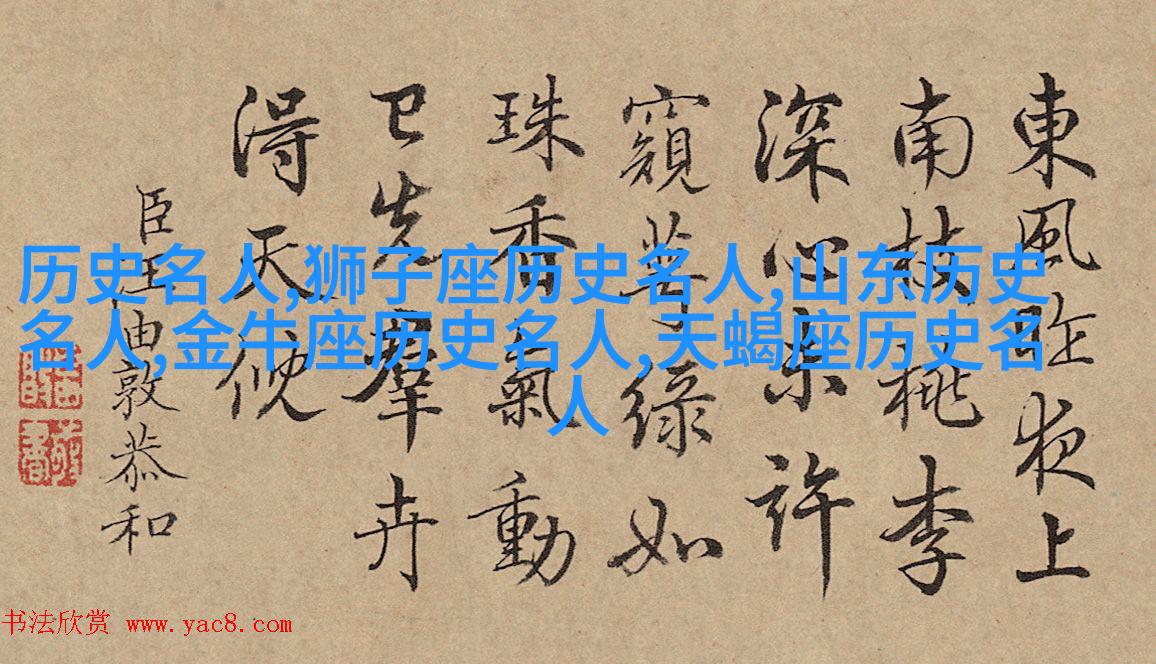 東風昨夜上
南枝桃李
深心未許
窺萼綠如
珠香氣動
已先羣卉
得天
臣汪由敦恭和
历史名人,狮子座历史名人,山东历史
名人,金牛座历史名人,天蝎座历史名
人
书法欣赏 www.yac8.com